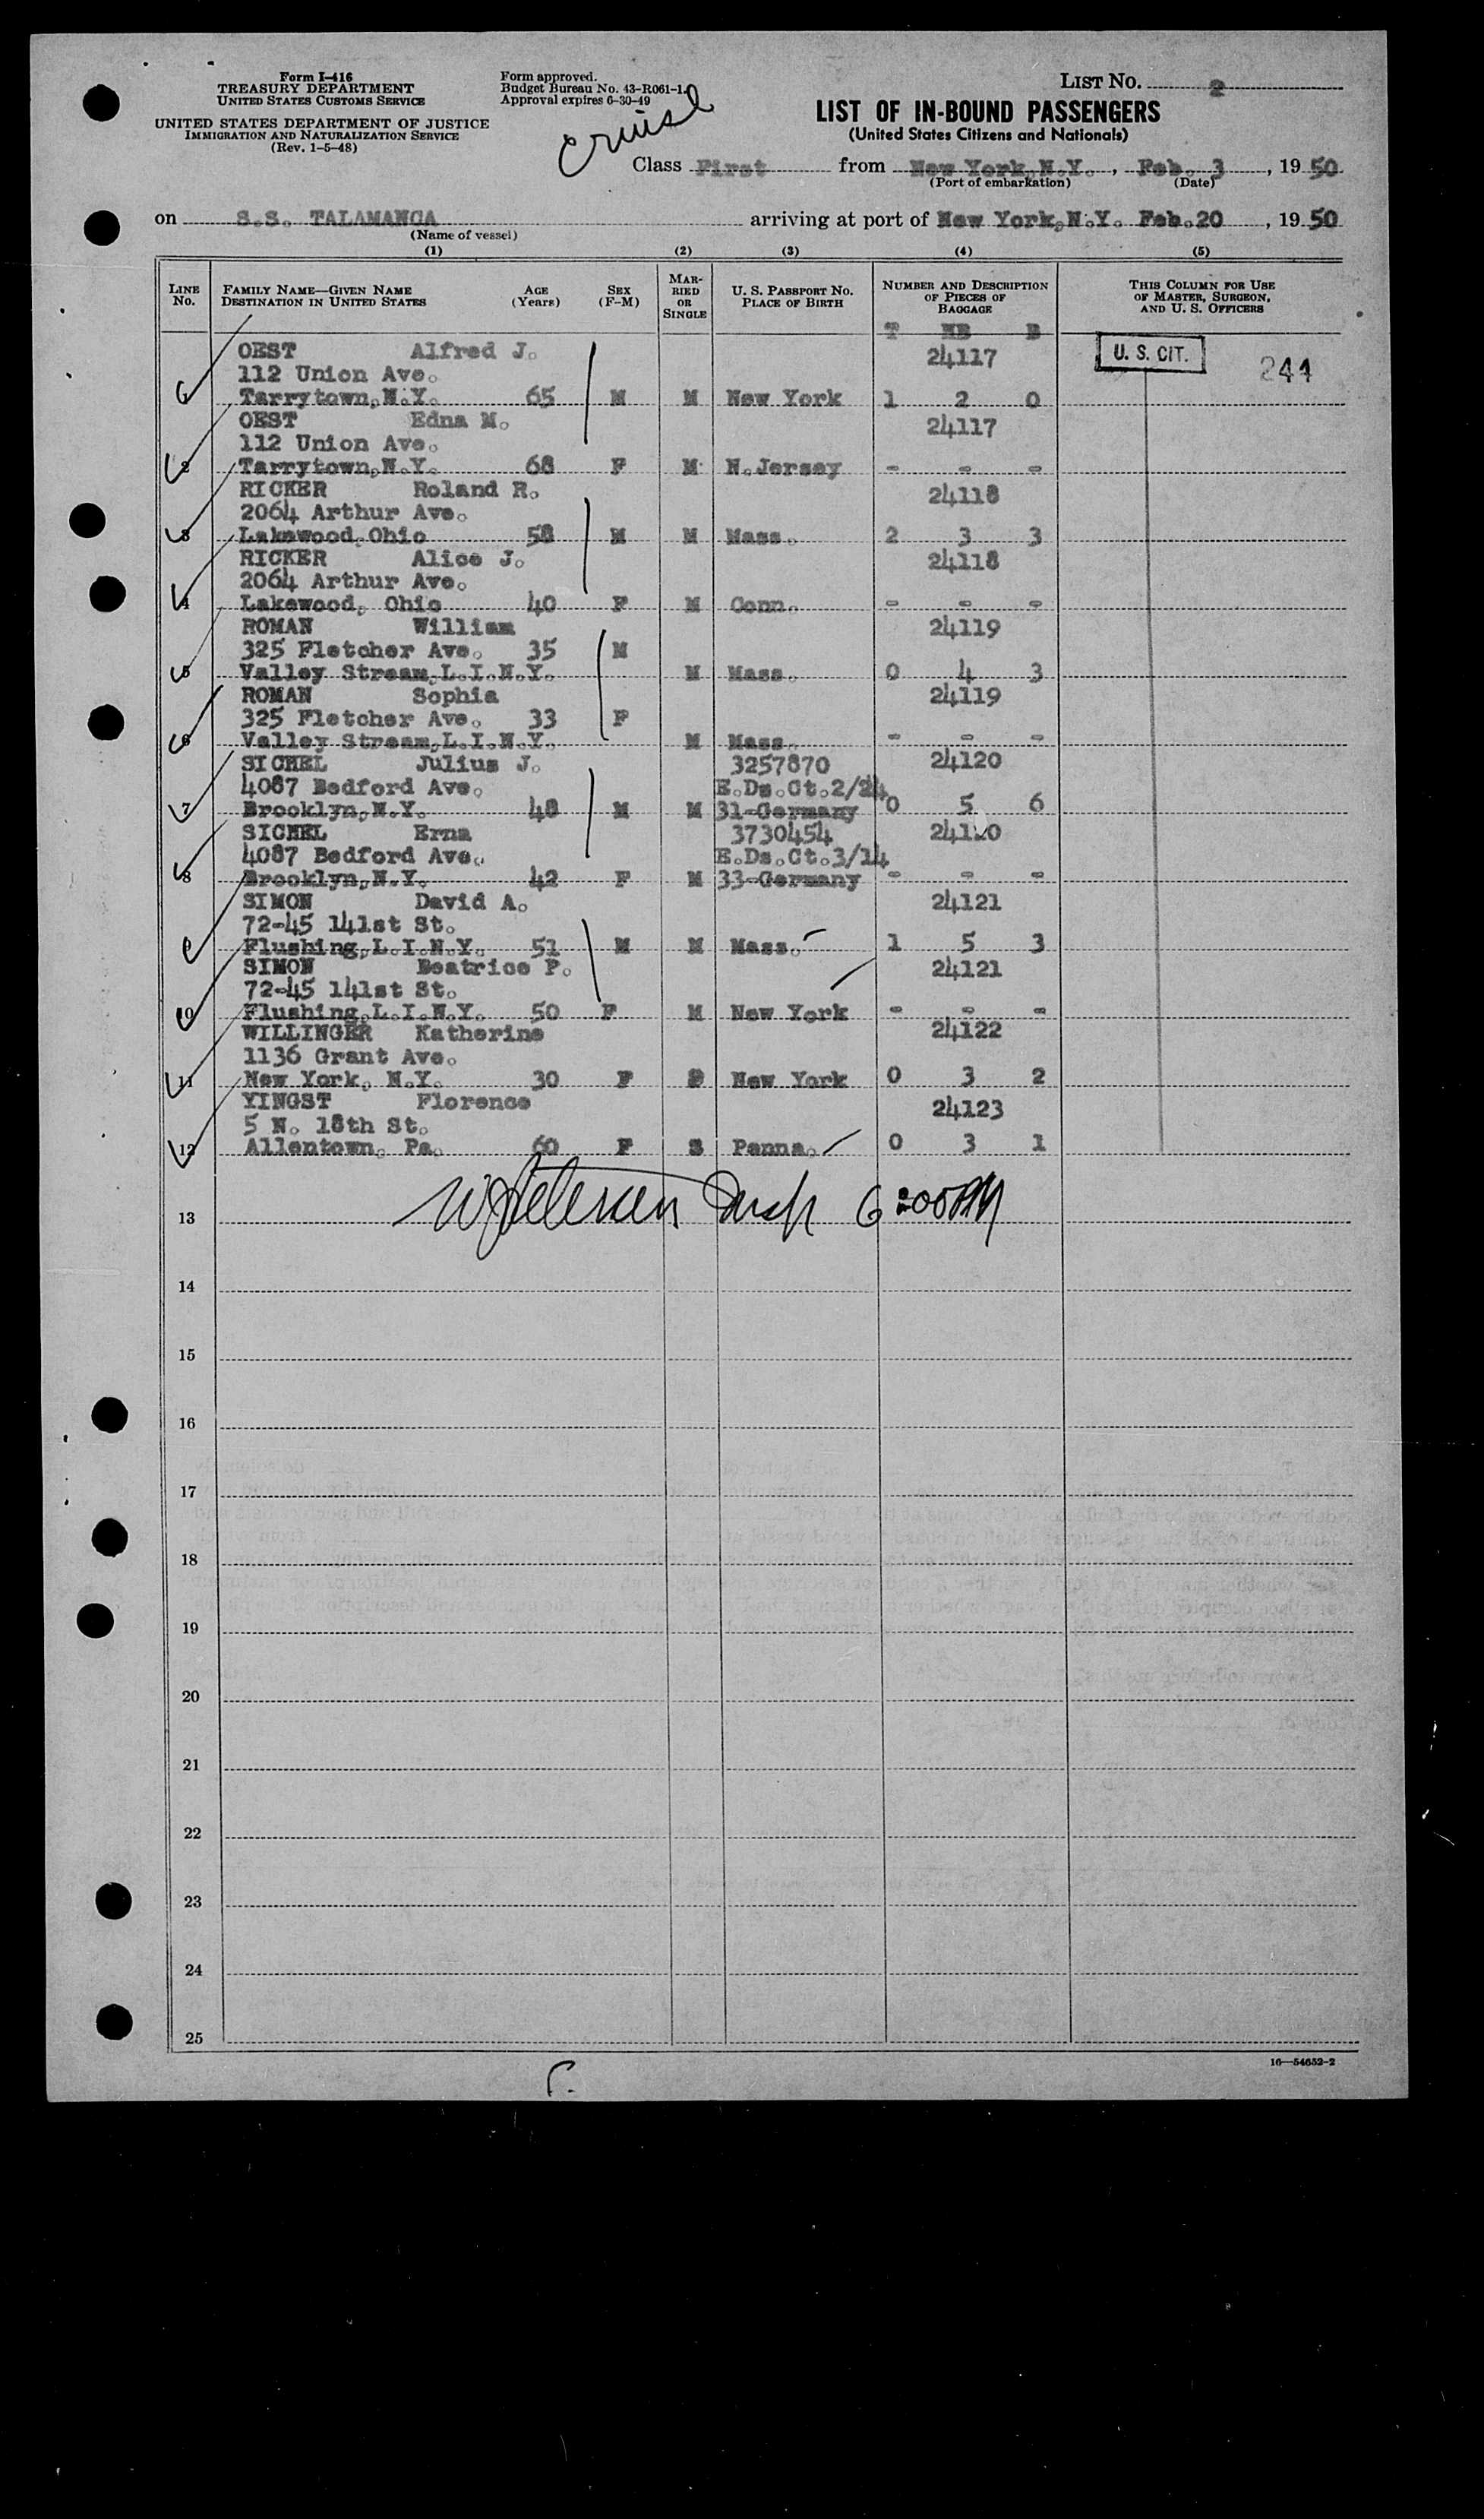 Form I-416
TREASURY DEPARTMENT
UNITED STATES CUSTOMS SERVICE
UNITED STATES DEPARTMENT OF JUSTICE
IMMIGRATION AND NATURALIZATION SERVICE
(Rev. 1-5-48)
Form approved.
Budget Bureau No. 43-R061-1.
Approval expires 6-30-49
cruise
LIST NO. 2
LIST OF IN-BOUND PASSENGERS
(United States Citizens and Nationals)
Class First from New York, N.Y., Feb. 3, 1950
(Port of embarkation) (Date)
on S.S. TALAMANCA arriving at port of New York, N.Y. Feb. 20, 1950
(Name of vessel)
(1) (2) (3) (4) (5)
LINE NO. FAMILY NAME—GIVEN NAME DESTINATION IN UNITED STATES AGE (Years) SEX (F-M) MARRIED OR SINGLE U. S. PASSPORT NO. PLACE OF BIRTH NUMBER AND DESCRIPTION OF PIECES OF BAGGAGE THIS COLUMN FOR USE OF MASTER, SURGEON, AND U. S. OFFICERS
T HB B
OEST Alfred J. 24117 U. S. CIT. 244
112 Union Ave.
Tarrytown, N.Y. 65 M M New York 1 2 0
OEST Edna M. 24117
112 Union Ave.
2 Tarrytown, N.Y. 68 F M N. Jersey - - -
RICKER Roland R. 24118
2064 Arthur Ave.
3 Lakewood, Ohio 58 M M Mass. 2 3 3
RICKER Alice J. 24118
2064 Arthur Ave.
4 Lakewood, Ohio 40 F M Conn. - - -
ROMAN William 24119
325 Fletcher Ave. 35 M
5 Valley Stream, L.I.N.Y. M Mass. 0 4 3
ROMAN Sophia 24119
325 Fletcher Ave. 33 F
6 Valley Stream, L.I.N.Y. M Mass. - - -
SICHEL Julius J. 3257870 24120
4087 Bedford Ave. E.Ds.Ct.2/24
7 Brooklyn, N.Y. 48 M M 31-Germany 0 5 6
SICHEL Erna 3730454 24120
4087 Bedford Ave. E.Ds.Ct.3/14
8 Brooklyn, N.Y. 42 F M 33-Germany - - -
SIMON David A. 24121
72-45 141st St.
Flushing, L.I.N.Y. 51 M M Mass. 1 5 3
SIMON Beatrice P. 24121
72-45 141st St.
10 Flushing, L.I.N.Y. 50 F M New York - - -
WILLINGER Katherine 24122
1136 Grant Ave.
11 New York, N.Y. 30 F New York 0 3 2
YINGST Florence 24123
5 N. 18th St.
12 Allentown, Pa. 60 F S Penna. 0 3 1
13
14
15
16
17
18
19
20
21
22
23
24
25
16—54652-2